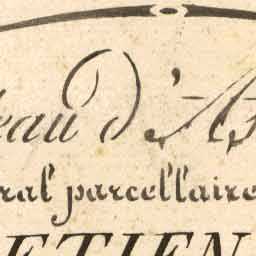 eau d'As
ral parcellaire
ETIEN